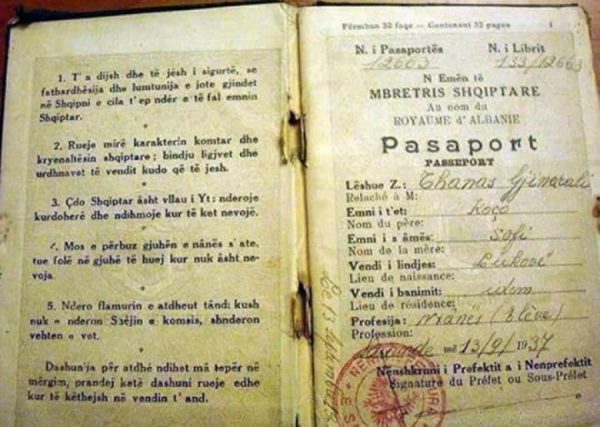 1. T'a dijsh dhe të jèsh i sigurtë, se
fatbardhësija dhe lumtunija e jote gjindet
në Shqipni e cila t'ep ndër e të fal emnin
Shqiptar.
2. Rueje mirë karakterin komtar dhe
kryenaltësin shqiptare; bindju ligjvet dhe
urdhnavet të vendit kudo që të jesh.
3. Çdo Shqiptar âsht vllau i Yt: nderoje
kurdoherë dhe ndihmoje kur të ket nevojë.
4. Mos e përbuz gjuhën e nânës s'ate,
tue folë në gjuhë të huej kur nuk âsht ne-
voja.
5. Ndero flamurin e atdheut tând; kush
nuk e nderon Shëjin e komsis, shnderon
vehten e vet.
Dashunija për atdhé ndihet mâ tepër në
mërgim, prandej ketë dashuni rueje edhe
kur të këthejsh në vendin t'and.
Përmban 32 faqe — Contenant 32 pages
1
N. i Pasaportës N. i Librit
12663 133/12663
N Emën të
MBRETRIS SHQIPTARE
Au nom du
ROYAUME d'ALBANIE
Pasaport
PASSEPORT
Lëshue Z.: Thanas Gjimarali
Relaché à M:
Emni i t'et: Koço
Nom du père:
Emni i s âmës: Sofi
Nom de la mère:
Vendi i lindjes: Lukovë
Lieu de naissance:
Vendi i banimit:
Lieu de résidence:
Profesija: nxânës (Elève)
Profession:
Sarandë më 13/9/1937
Nënshkrimi i Prefektit a i Nenprefektit
Signature du Préfet ou Sous-Préfet